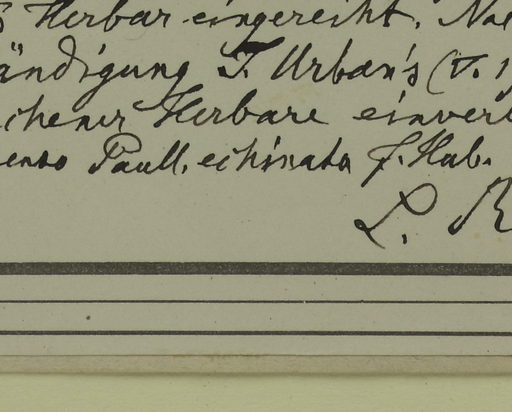 Herbar eingereiht. Na
ändigung I. Urban's (v. 1
chener Herbare einverl
enso Paull. echinata f. Hub.
L. R